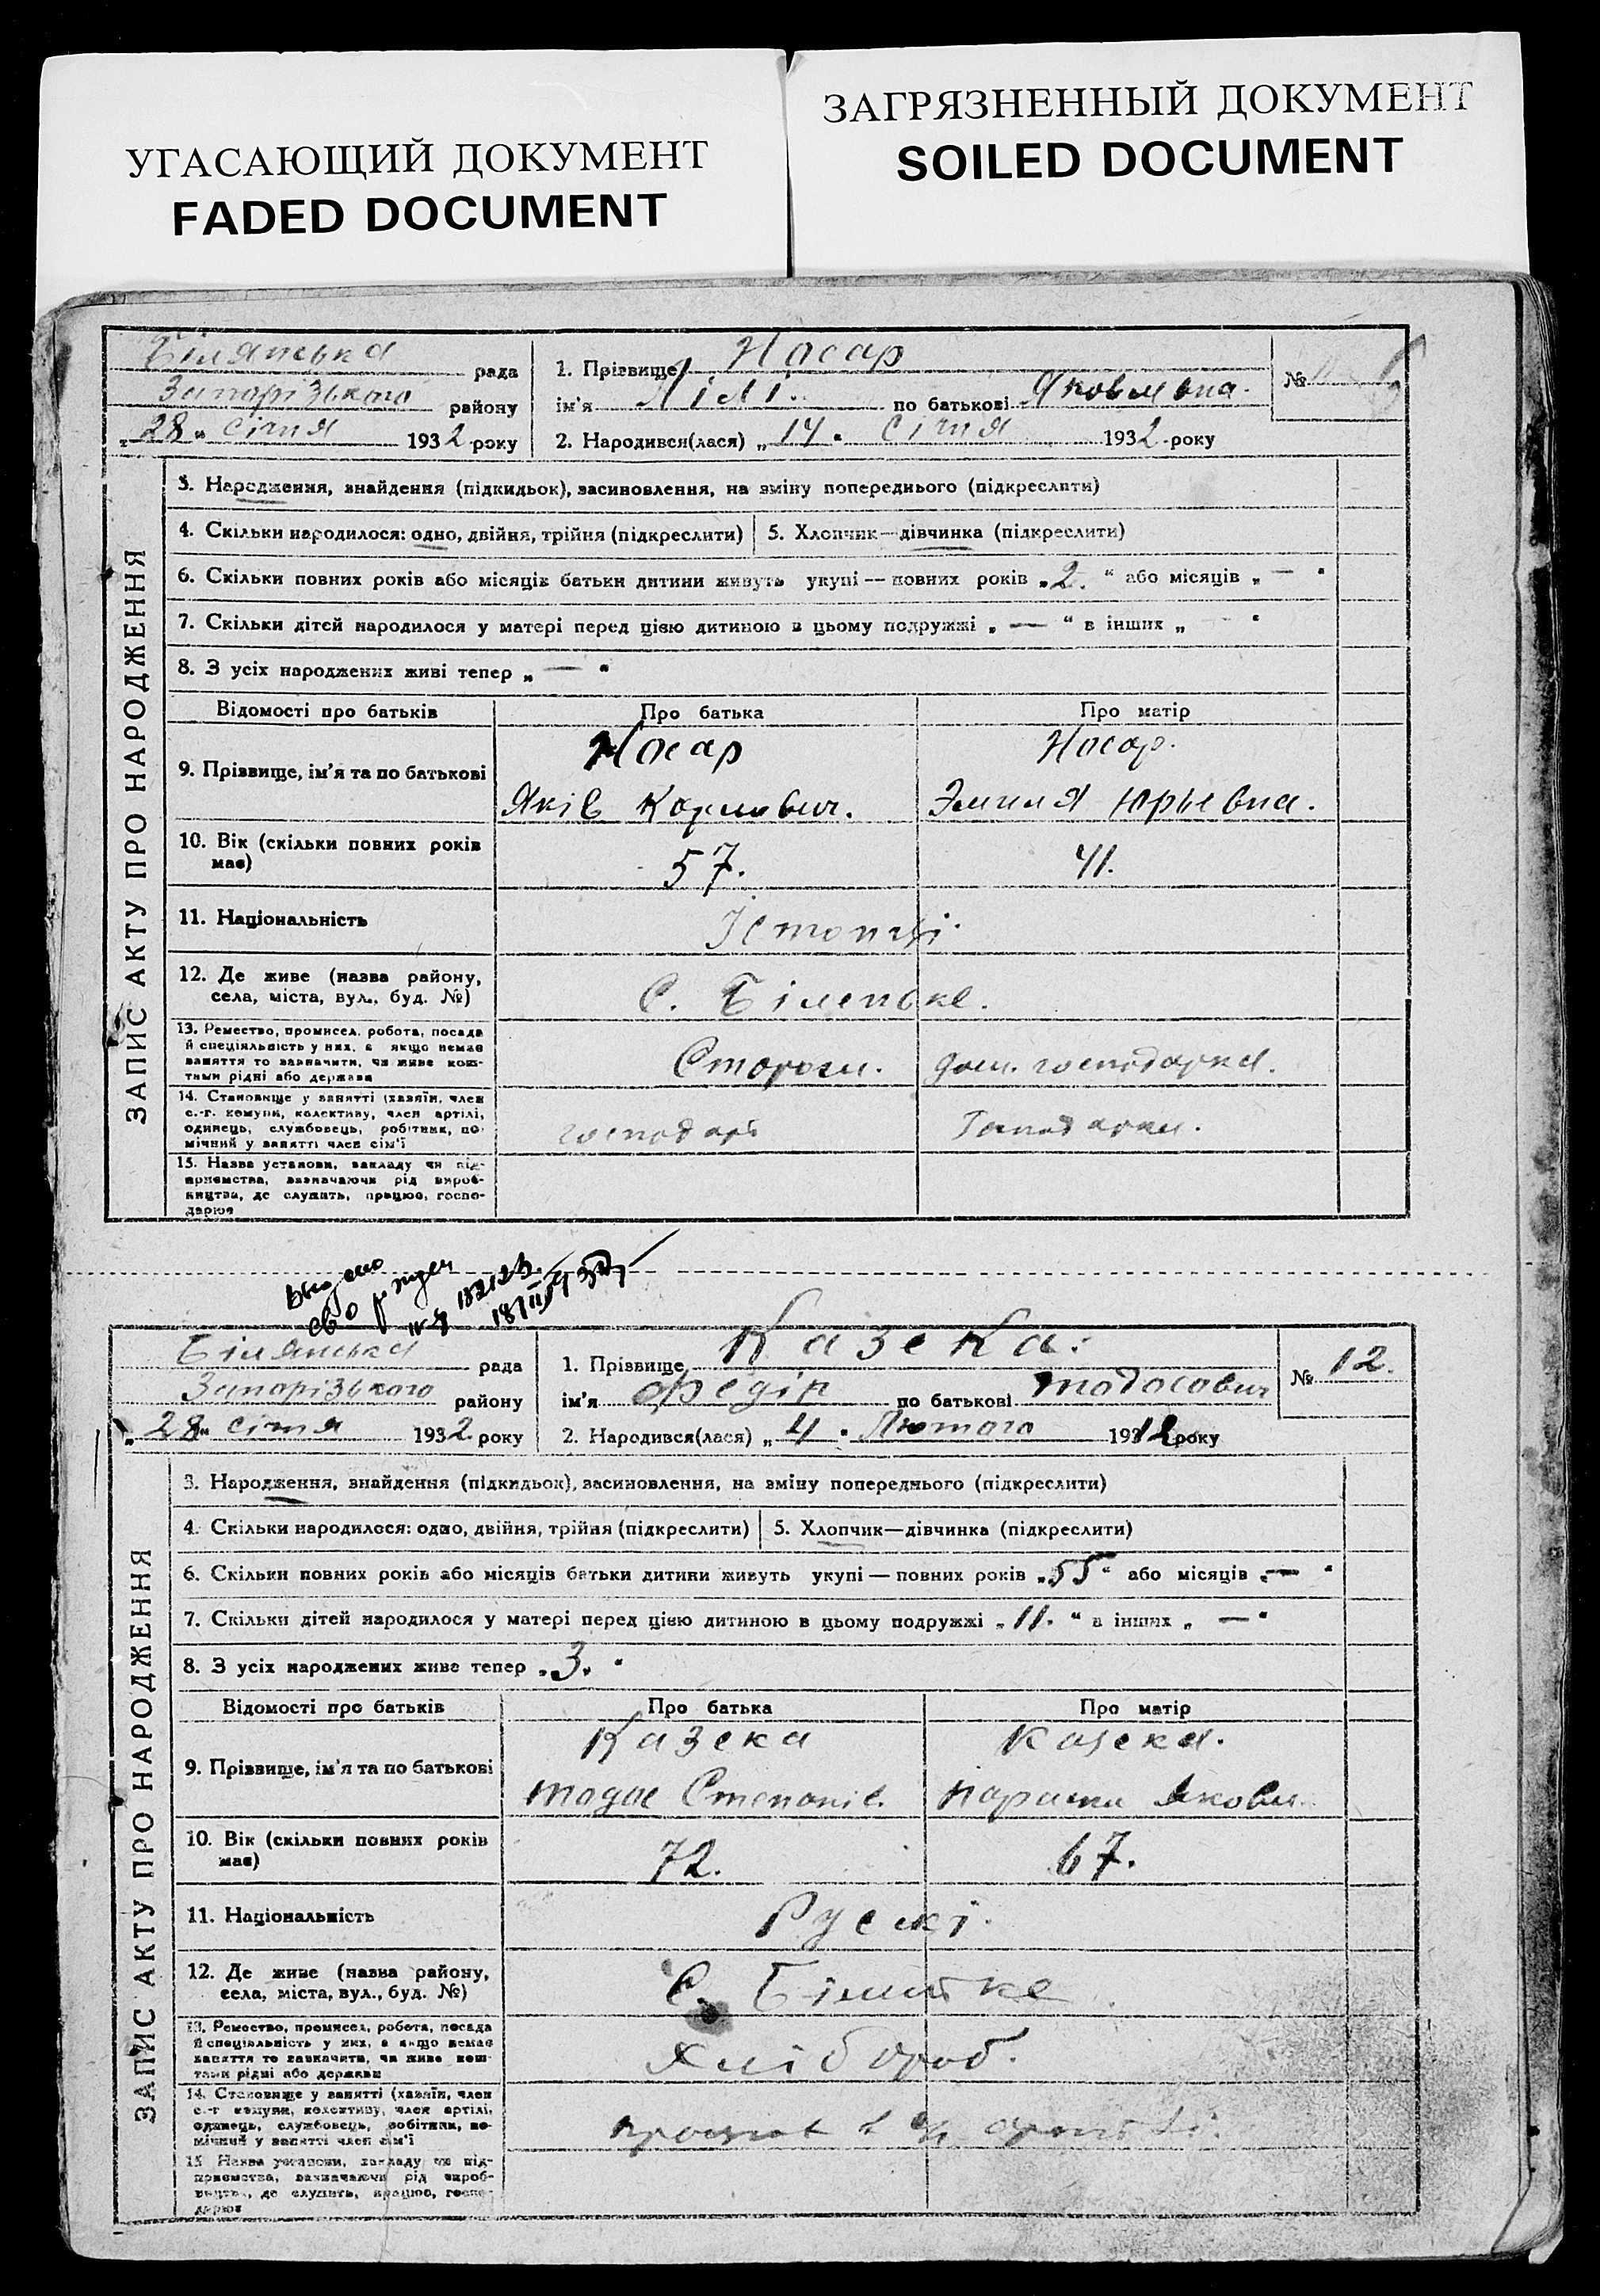 УГАСАЮЩИЙ ДОКУМЕНТ
FADED DOCUMENT
ЗАГРЯЗНЕННЫЙ ДОКУМЕНТ
SOILED DOCUMENT
ЗАПИС АКТУ ПРО НАРОДЖЕННЯ
Білянська рада
Запорізького району
„28“ січня 1932 року
1. Прізвище Носар
ім'я Лілі. по батькові Яковлевна.
№
2. Народився(лася) „14“ Січня 1932 року
3. Народження, знайдення (підкидьок), засиновлення, на зміну попереднього (підкреслити)
4. Скільки народилося: одно, двійня, трійня (підкреслити) 5. Хлопчик—дівчинка (підкреслити)
6. Скільки повних років або місяців батьки дитини живуть укупі — повних років „2.“ або місяців „—“
7. Скільки дітей народилося у матері перед цією дитиною в цьому подружжі „—“ в інших „—“
8. З усіх народжених живі тепер „—“
Відомості про батьків Про батька Про матір
9. Прізвище, ім'я та по батькові
Носар Носар.
Яків Карлович. Эмилия Юрьевна.
10. Вік (скільки повних років має) 57. 41.
11. Національність Істонці.
12. Де живе (назва району, села, міста, вул., буд. №) С. Біленьке.
13. Ремество, промисел, робота, посада й спеціяльність у них, а якщо немає заняття то зазначити, чи живе коштами рідні або держави
Сторож. дом. господарка.
14. Становище у занятті (хазяїн, член с.-г. комуни, колективу, член артілі, одинець, службовець, робітник, помічний у занятті член сім'ї
господар Господарка.
15. Назва установи, закладу чи підприємства, зазначаючи рід виробництва, де служить, працює, господарює
Выдано
св о рожден
№ 182123.
ЗАПИС АКТУ ПРО НАРОДЖЕННЯ
Білянська рада
Запорізького району
„28“ січня 1932 року
1. Прізвище Казека.
ім'я Федір по батькові Тодосович
№ 12.
2. Народився(лася) „4“ Лютого 1912 року
3. Народження, знайдення (підкидьок), засиновлення, на зміну попереднього (підкреслити)
4. Скільки народилося: одно, двійня, трійня (підкреслити) 5. Хлопчик—дівчинка (підкреслити)
6. Скільки повних років або місяців батьки дитини живуть укупі — повних років „55“ або місяців „—“
7. Скільки дітей народилося у матері перед цією дитиною в цьому подружжі „11.“ в інших „—“
8. З усіх народжених живе тепер „3.“
Відомості про батьків Про батька Про матір
9. Прізвище, ім'я та по батькові
Казека Казека.
Тодос Степанів. Параска Яковл.
10. Вік (скільки повних років має) 72. 67.
11. Національність Рускі.
12. Де живе (назва району, села, міста, вул., буд. №) С. Біленьке
13. Ремество, промисел, робота, посада й спеціяльність у них, а якщо немає заняття то зазначити, чи живе коштами рідні або держави
Хлібороб.
14. Становище у занятті (хазяїн, член с.-г. комуни, колективу, член артілі, одинець, службовець, робітник, помічний у занятті член сім'ї
працює в с/г артілі.
15. Назва установи, закладу чи підприємства, зазначаючи рід виробництва, де служить, працює, господарює